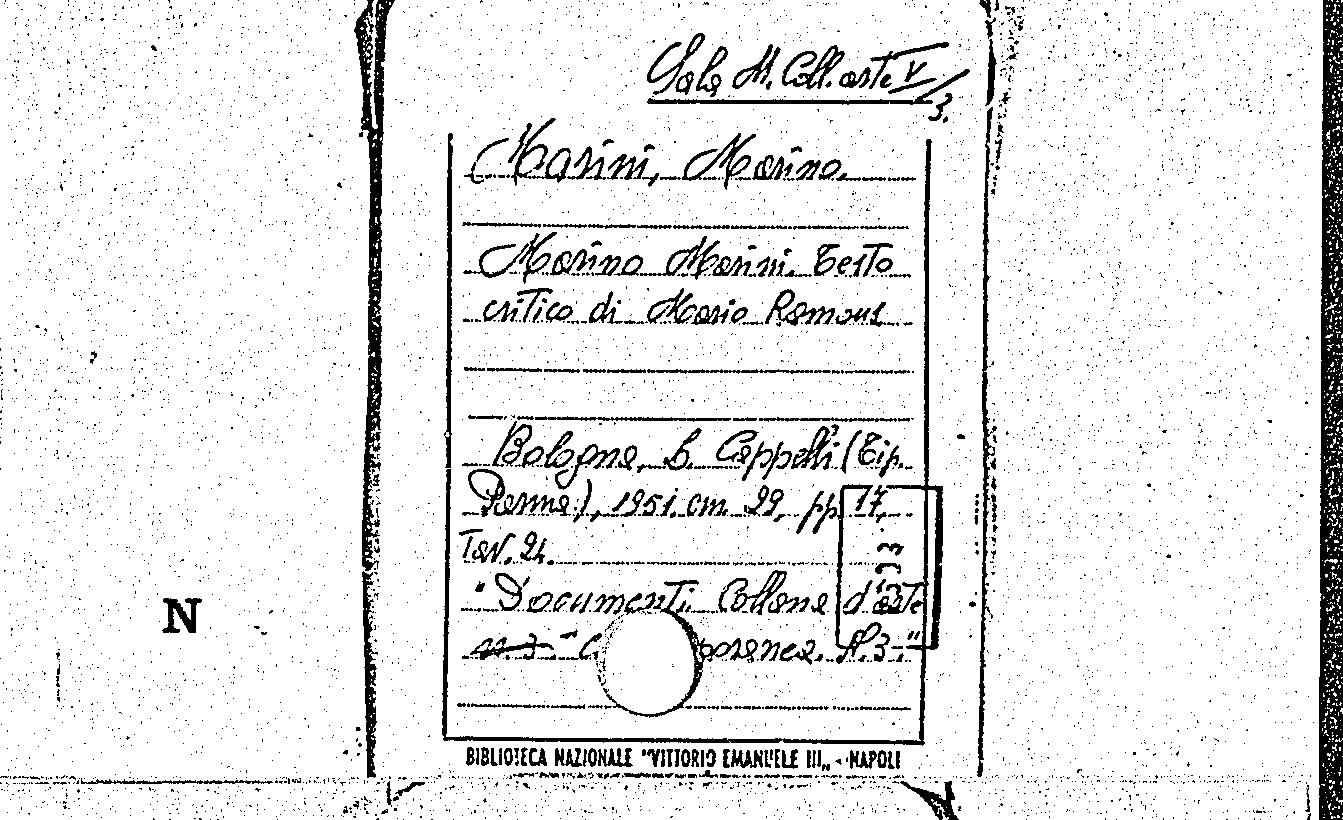 Sala M. Coll. arte V/3.
Marini, Marino.
Marino Marini. Testo
critico di Mario Ramous
Bologna, L. Cappelli (Tip.
Parma), 1951. cm. 29, pp. 17,
Tav. 24.
"Documenti. Collana d'arte
n. 3." N. 3."
N
BIBLIOTECA NAZIONALE "VITTORIO EMANUELE III„ - NAPOLI